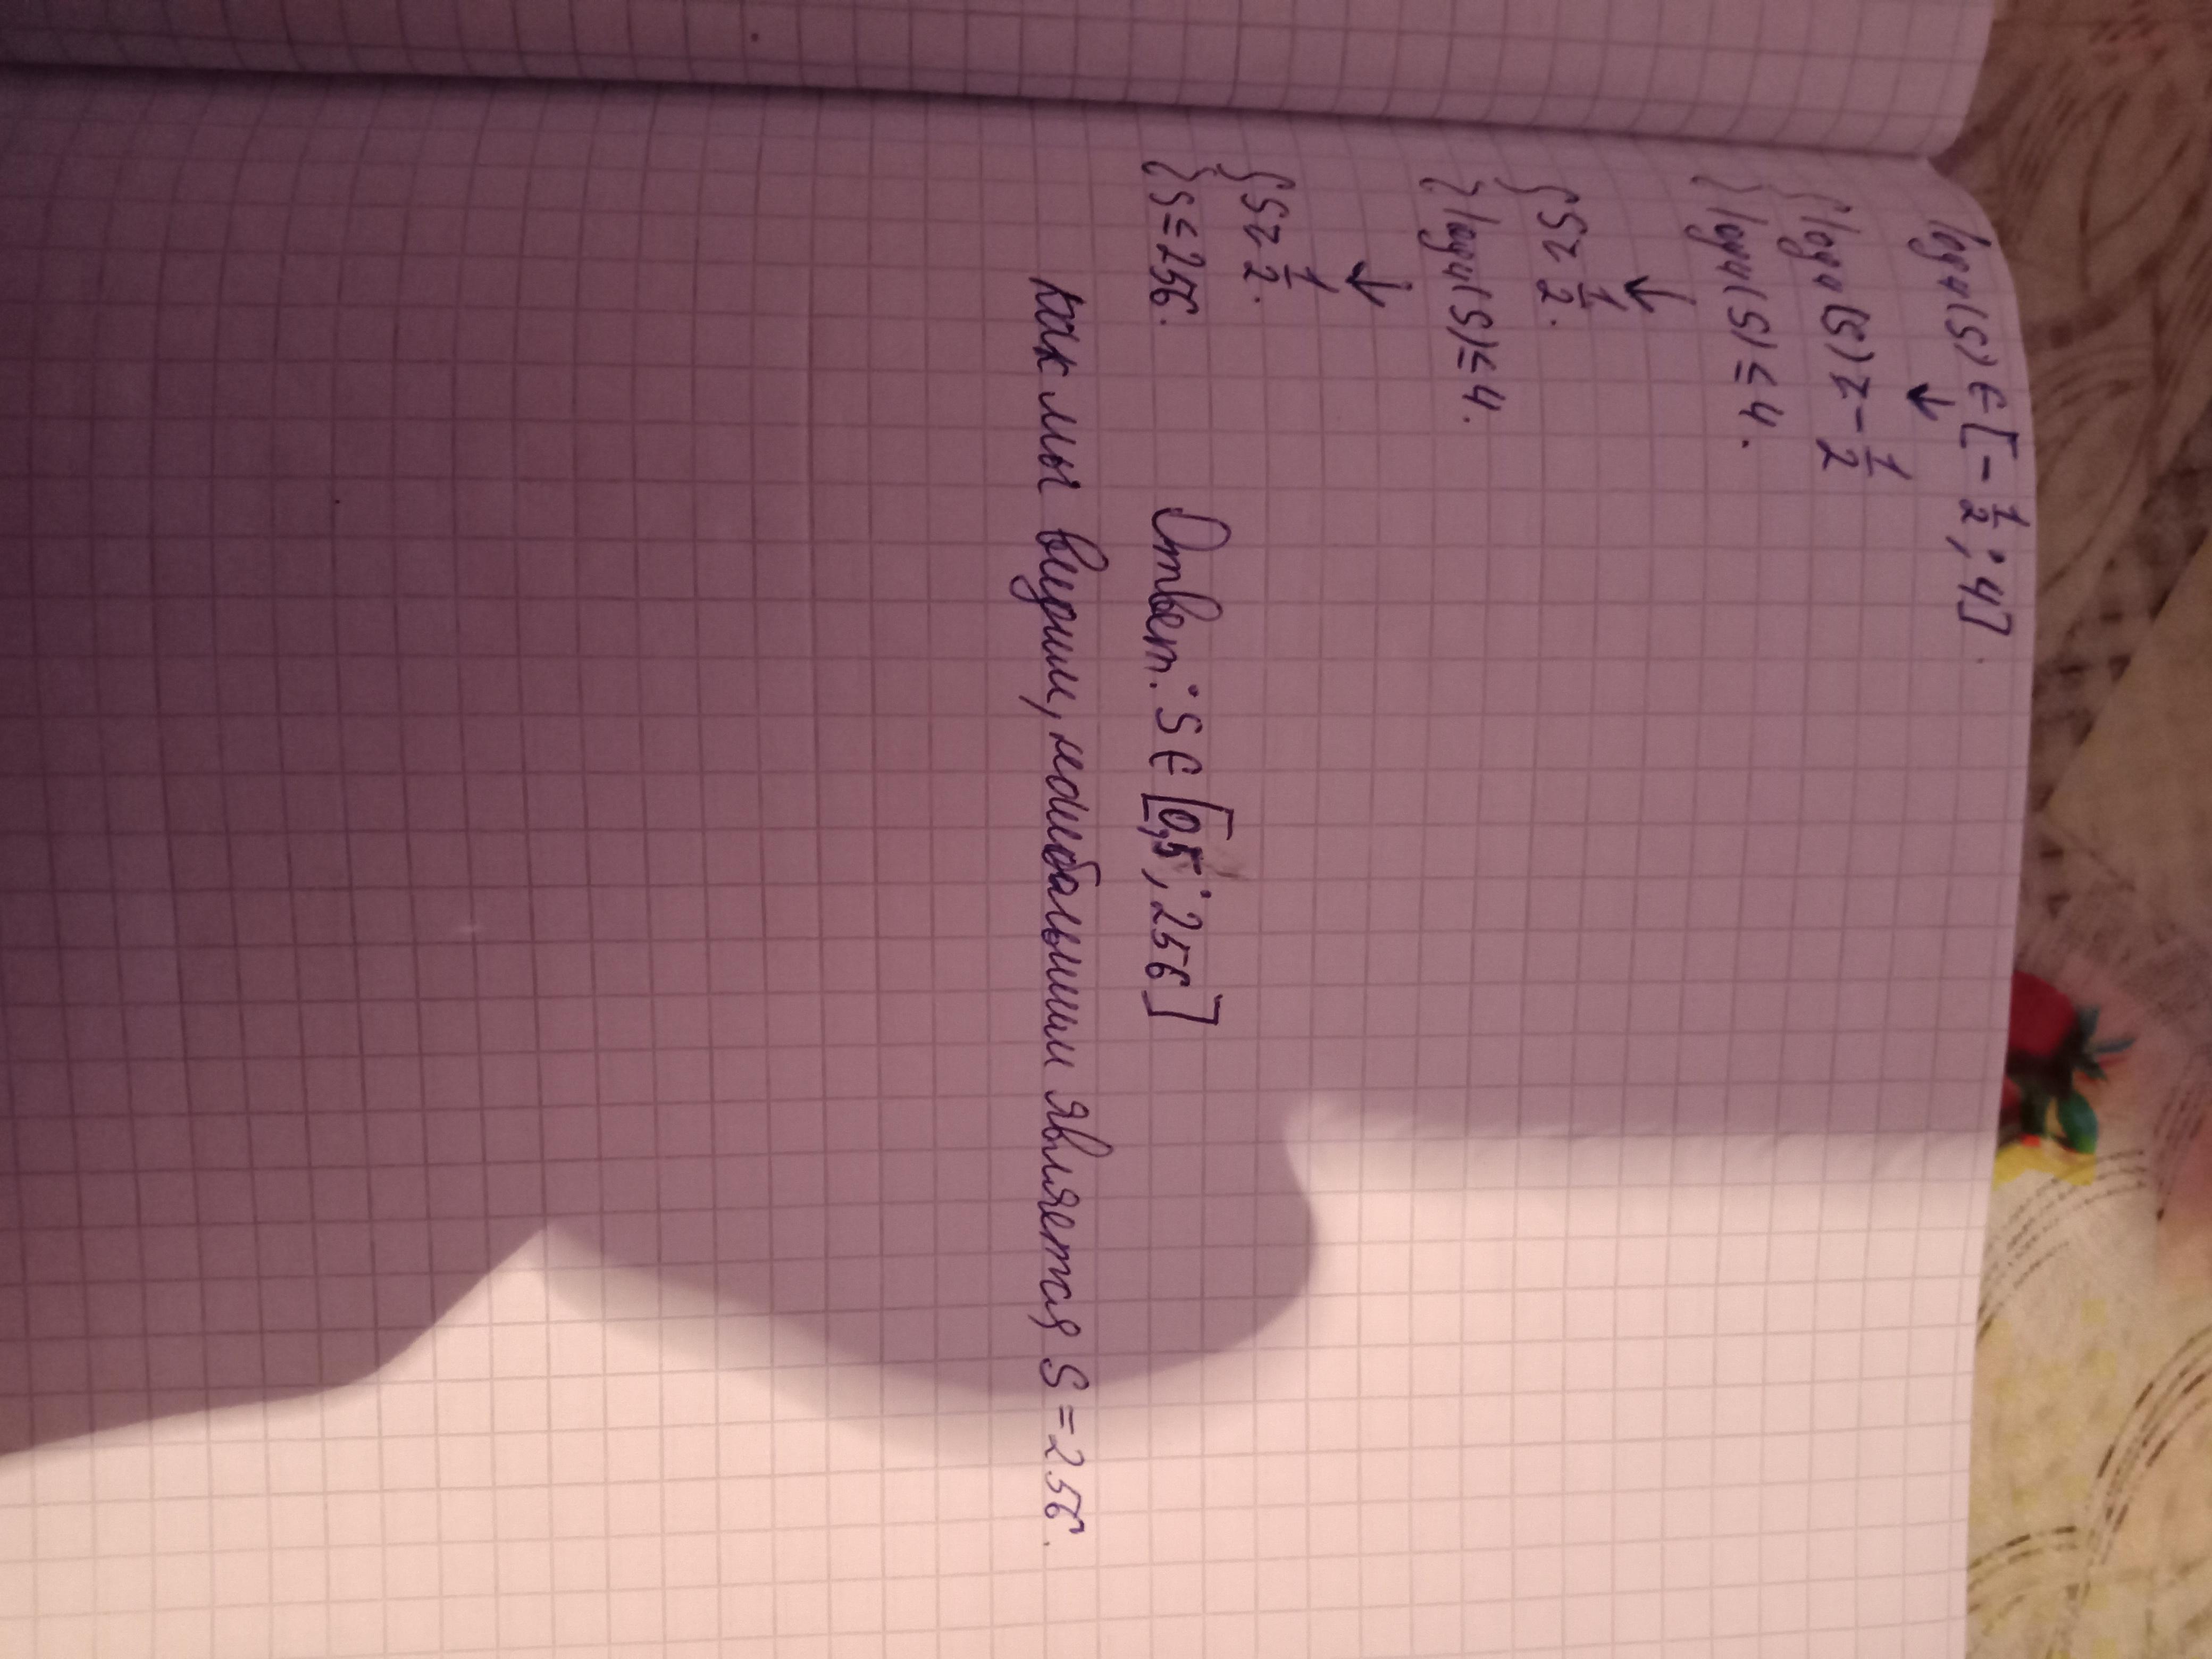 log₄(S) ∈ [-1/2; 4].
↓
{ log₄(S) ≥ -1/2
{ log₄(S) ≤ 4.
↓
{ S ≥ 1/2.
{ log₄(S) ≤ 4.
↓
{ S ≥ 1/2.
{ S ≤ 256.
Ответ: S ∈ [0,5; 256]
как мы видим, наибольшим является S = 256.